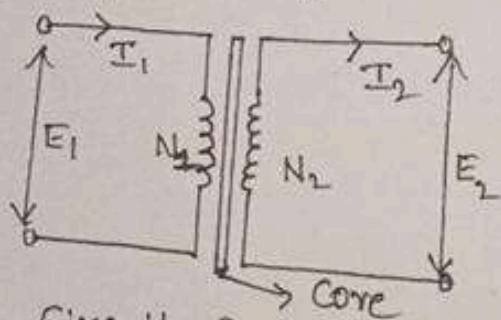 I1 I2
E1 N1 N2 E2
Core